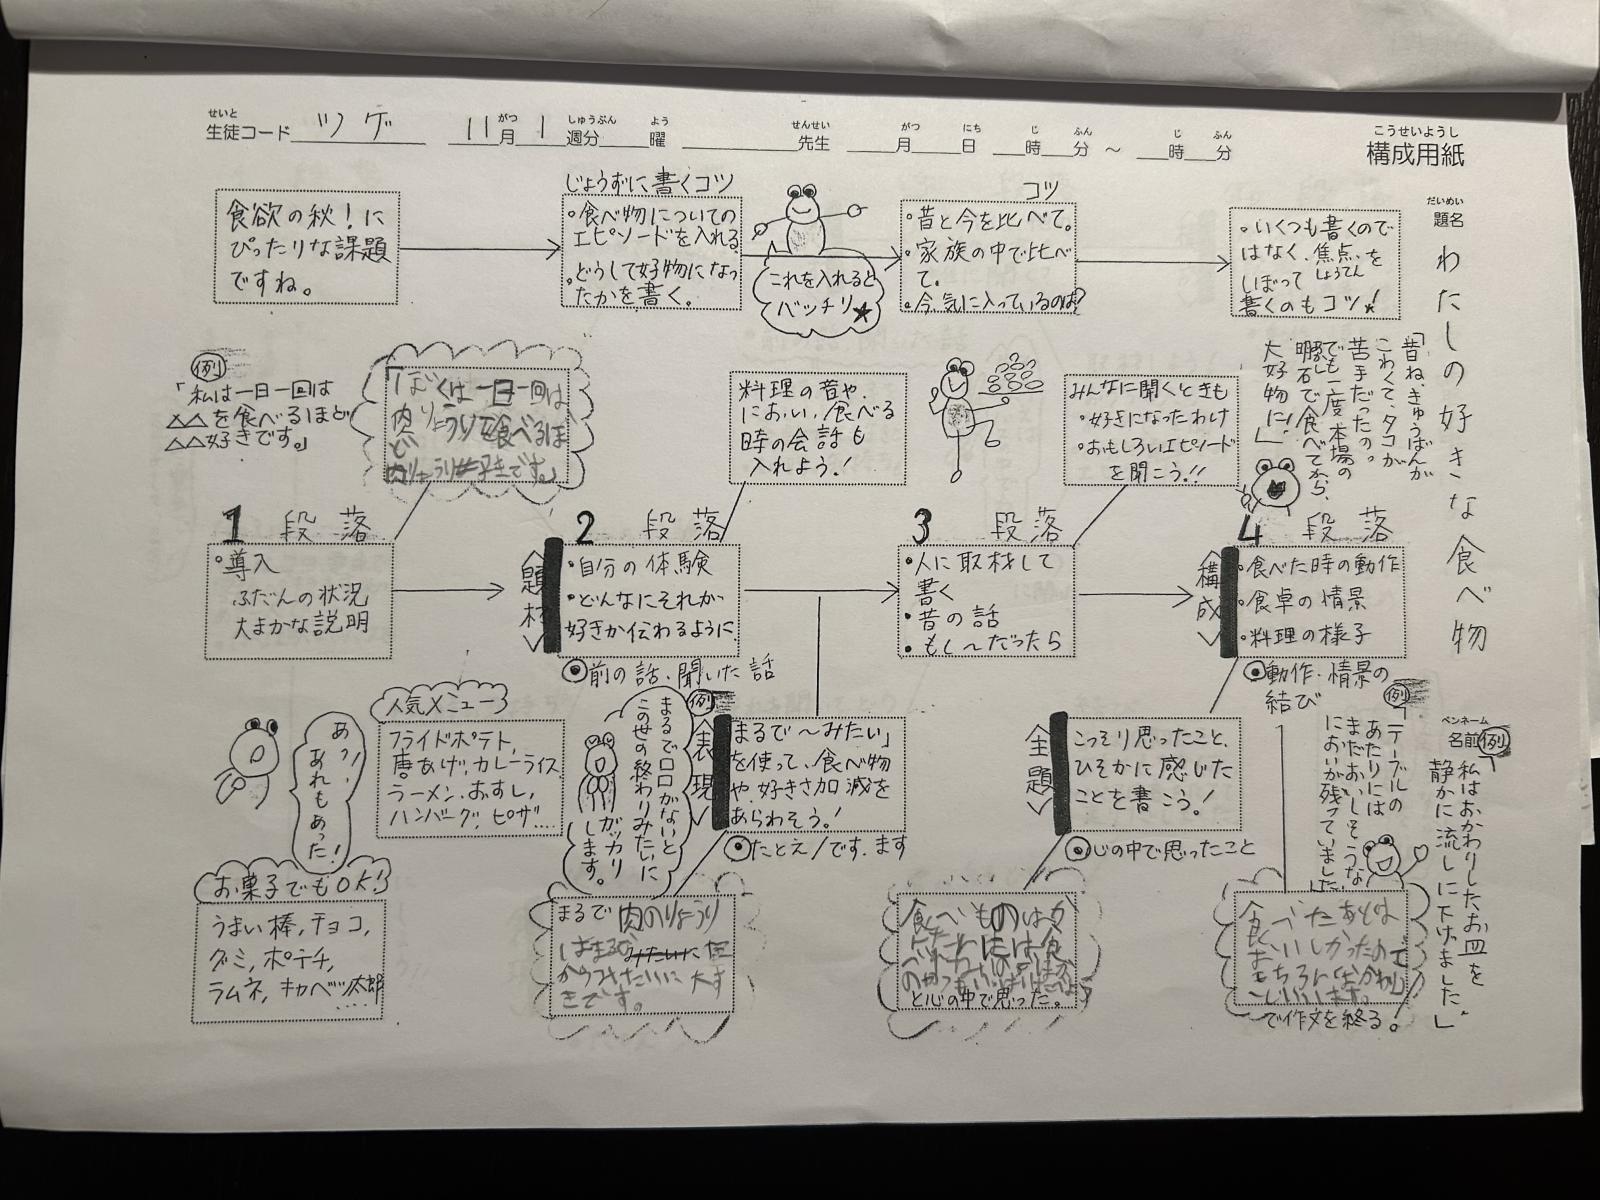 せいと
生徒コード ツゲ 11月1週分 曜 先生 月 日 時 分 ～ 時 分
がつ しゅうぶん よう せんせい がつ にち じ ふん じ ふん
こうせいようし
構成用紙
だいめい
題名
わたしの好きな食べ物
食欲の秋!に
ぴったりな課題
ですね。
じょうずに書くコツ
・食べ物についての
エピソードを入れる
・どうして好物になっ
たかを書く。
これを入れると
バッチリ★
コツ
・昔と今を比べて。
・家族の中で比べ
て。
・今、気に入っているのは?
・いくつも書くので
はなく、焦点を
しょうてん
しぼって
書くのもコツ!
例
「私は一日一回は
△△を食べるほど
△△好きです。」
「ぼくは一日一回は
肉りょうりを食べるほ
ど
肉りょうり好きです。」
料理の音や、
におい、食べる
時の会話も
入れよう!
みんなに聞くときも
・好きになったわけ
・おもしろいエピソード
を聞こう!!
「昔ね、きゅうばんが
こわくて、タコが
苦手だったの。
でも一度、本場の
明石で食べてから、
大好物に!」
1段落
・導入
ふだんの状況
大まかな説明
2段落
<題材>
・自分の体験
・どんなにそれが
好きか伝わるように
◉前の話、聞いた話
3段落
・人に取材して
書く
・昔の話
・もし〜だったら
4段落
<構成>
・食べた時の動作
・食卓の情景
・料理の様子
◉動作、情景の
結び
あっ、
あれもあった!
人気メニュー
フライドポテト、
唐あげ、カレーライス、
ラーメン、おすし、
ハンバーグ、ピザ....
例
まるで口口がないと
この世の終わりみたいに
ガッカリ
します。
<表現>
「まるで〜みたい」
を使って、食べ物
や、好きさ加減を
あらわそう!
◉たとえ/です、ます
<主題>
こっそり思ったこと、
ひそかに感じた
ことを書こう!
◉心の中で思ったこと
例
「テーブルの
あたりには
まだおいしそうな
においが残っていました
ペンネーム
名前
例
「私はおかわりしたお皿を
静かに流しに下げました。」
お菓子でもOK!
うまい棒、チョコ、
グミ、ポテチ、
ラムネ、キャベツ太郎
....
まるで肉のりょうり
はまるでみたいに
大す
きです。
食べものは
と心の中で思った。
食べたあとは
で作文を終る!